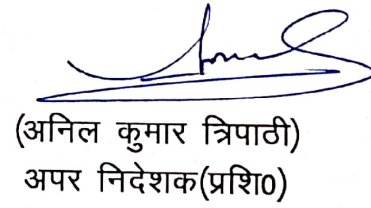 (अनिल कुमार त्रिपाठी)
अपर निदेशक(प्रशि0)